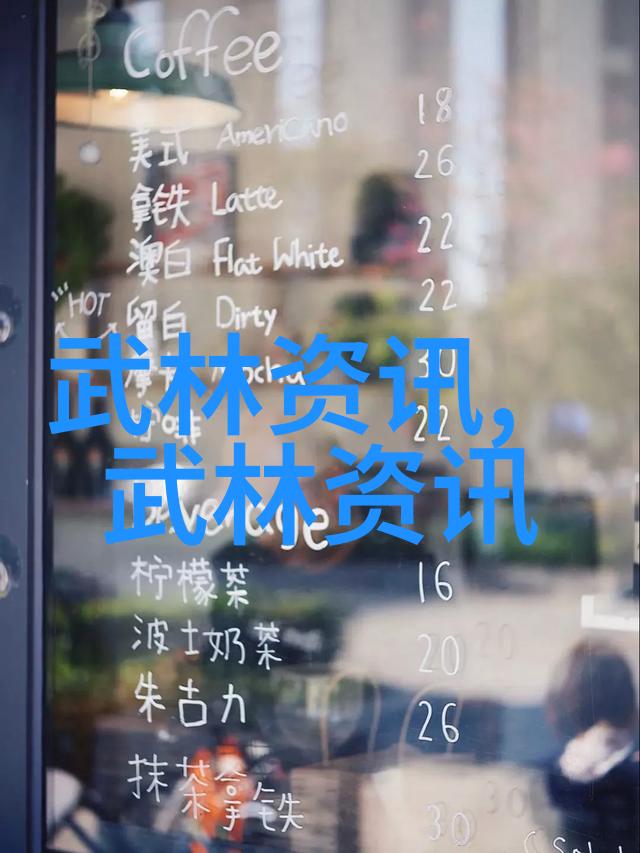 Coffee
美式 Americano 18
拿铁 Latte 26
澳白 Flat White 22
HOT 留白 Dirty 22
30
武林资讯,
22
武林资讯
柠檬茶 16
波士奶茶 20
朱古力 26
抹茶拿铁 30